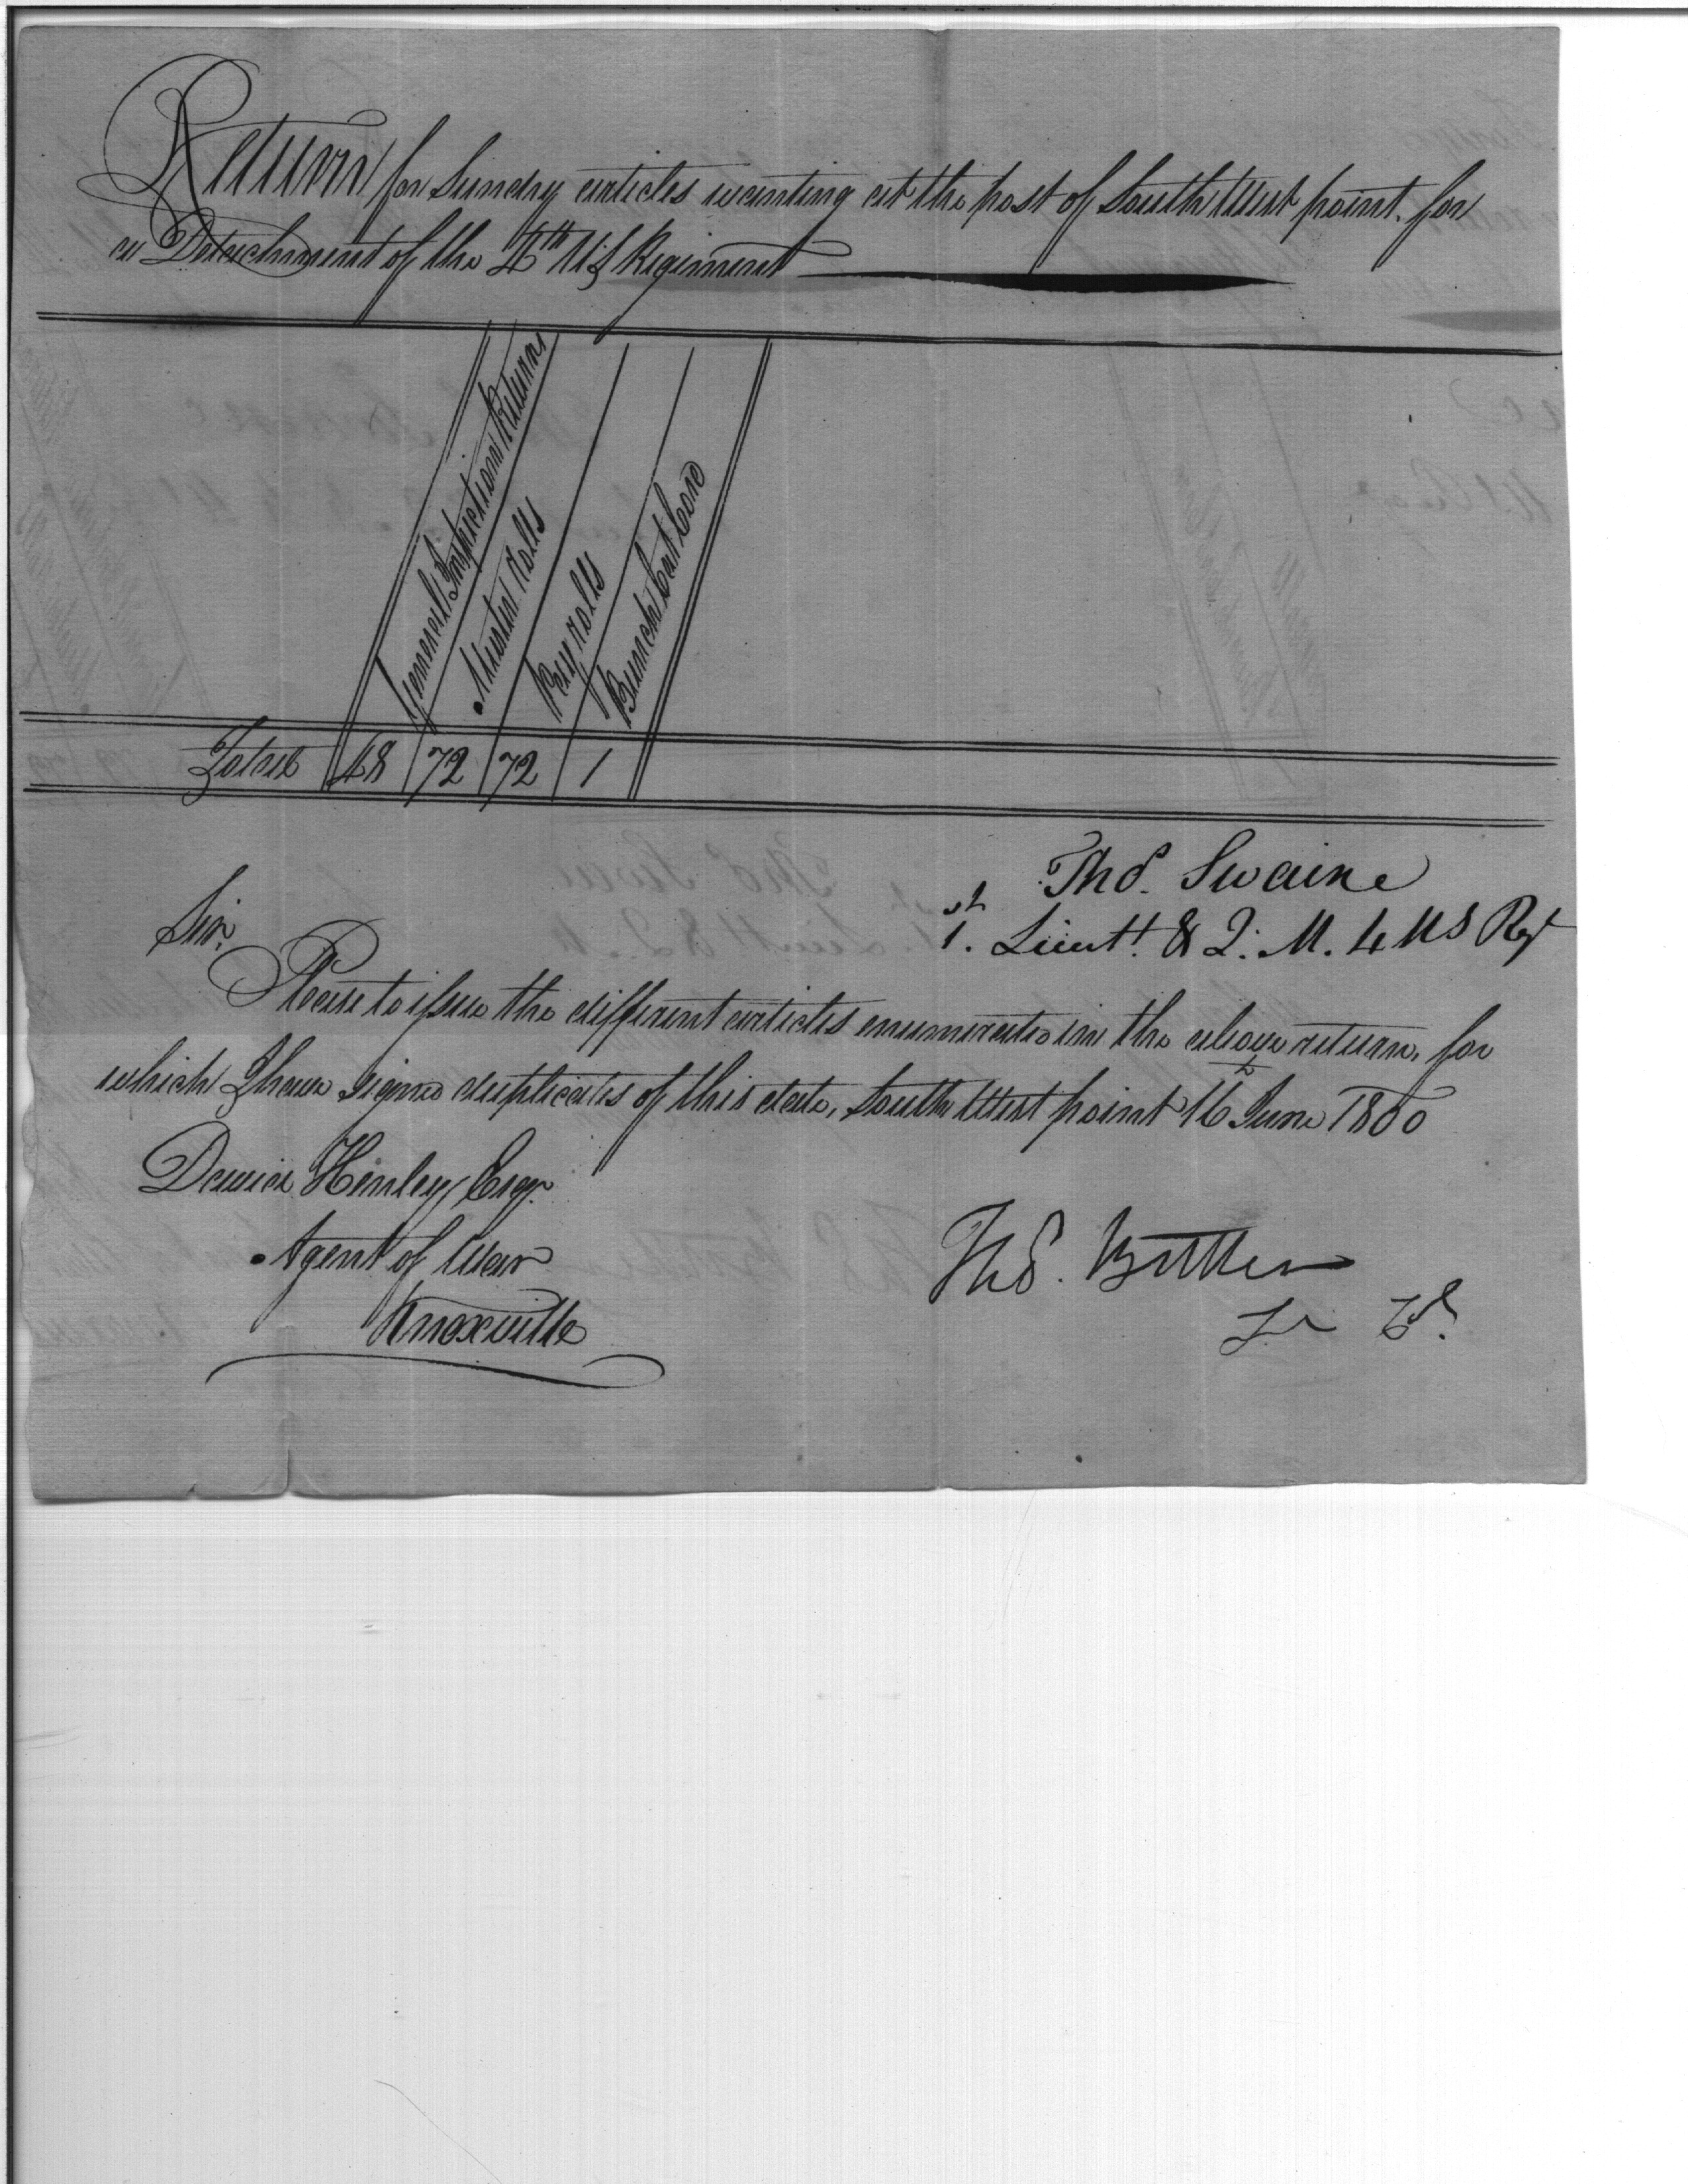 Return for Sundry articles wanting at the post of South West point. for
a Detachment of the 4th US Regiment
General Inspection Returns
Muster Rolls
Pay rolls
Bunch Cat Cord
Total 48 72 72 1
Thos. Swaine
1st. Lieutt. & Q. M. 4 US Regt
Sir.
Please to issue the different articles enumerated in the above return, for
which I have signed duplicates of this date, South West point 16th June 1800
David Henley Esqr.
Agent of War
Knoxville
Thos. Butler